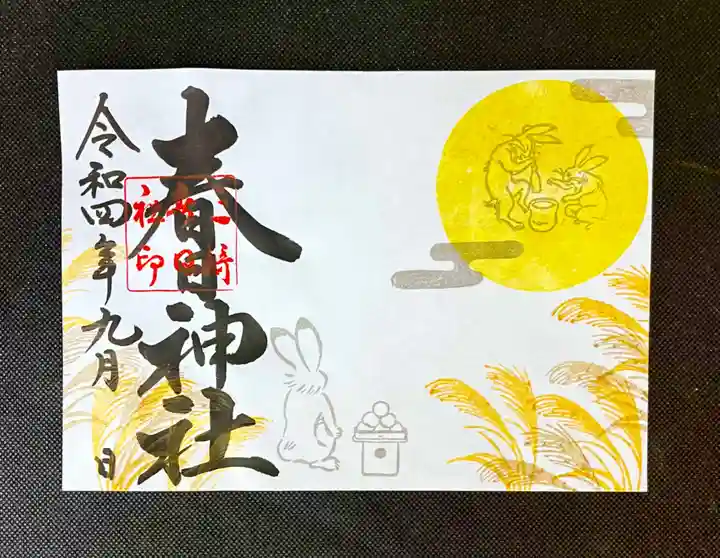 春日神社
社印
令和四年九月 日